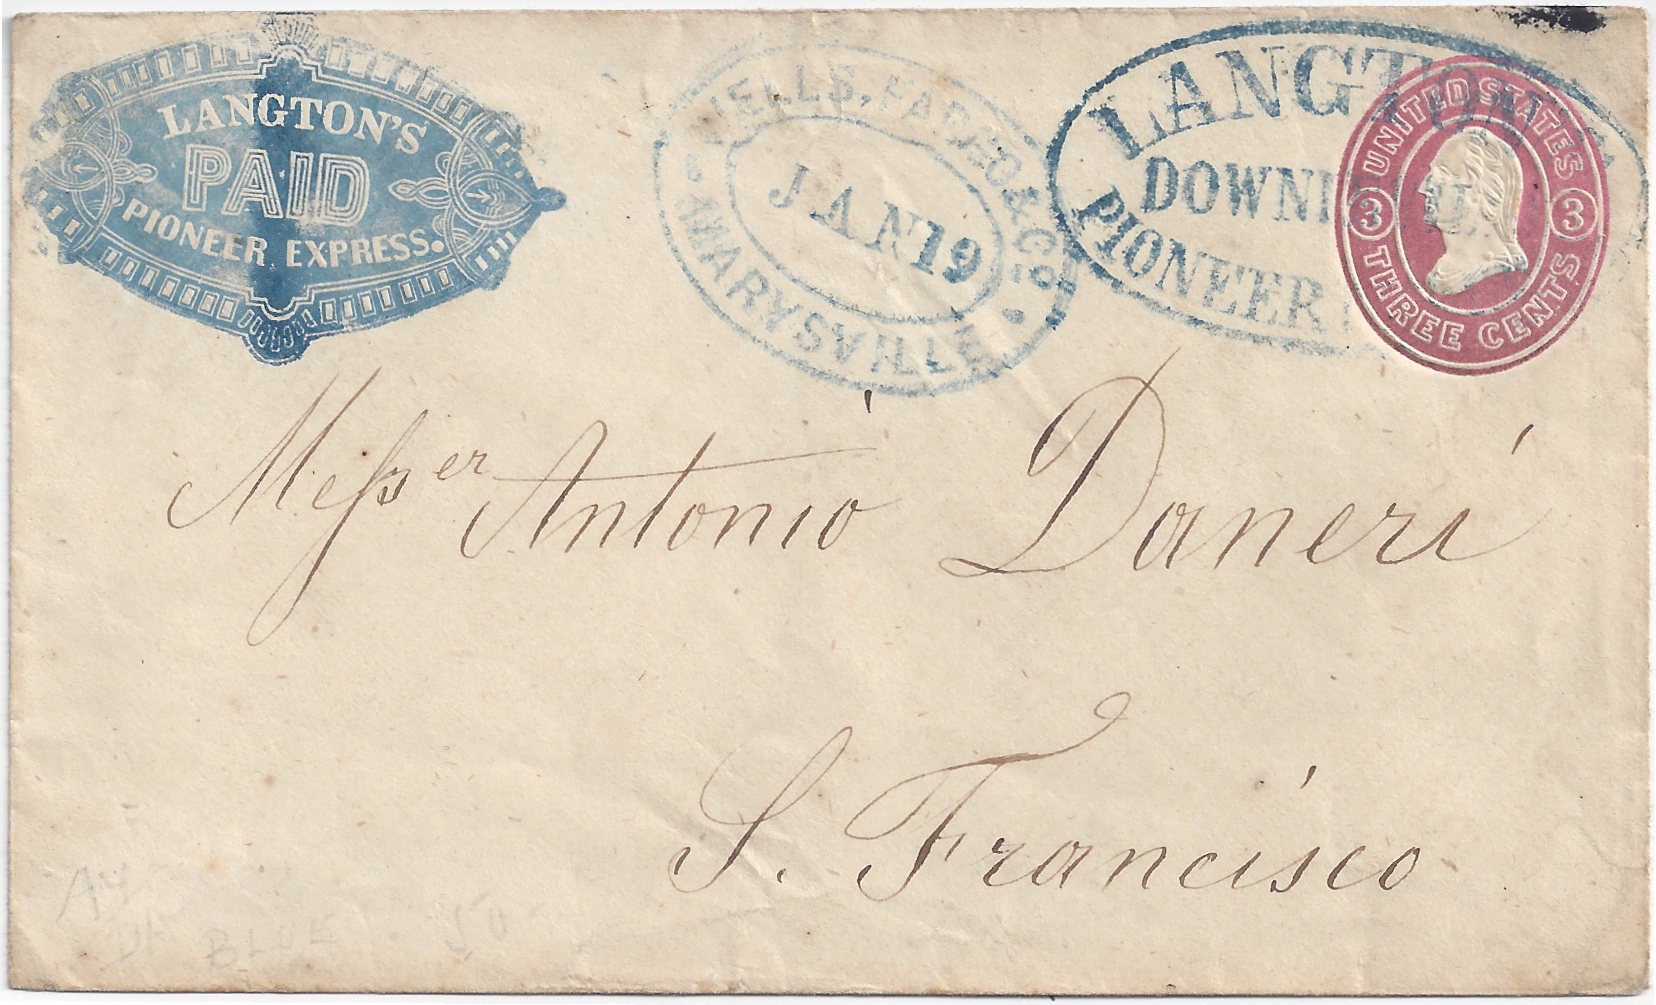 LANGTON'S
PAID
PIONEER EXPRESS.
WELLS, FARGO & CO
JAN 19
MARYSVILLE
LANGTON'S
PIONEER
UNITED STATES
3 3
THREE CENTS
Messer Antonio Daneri
S. Francisco
BLUE 50